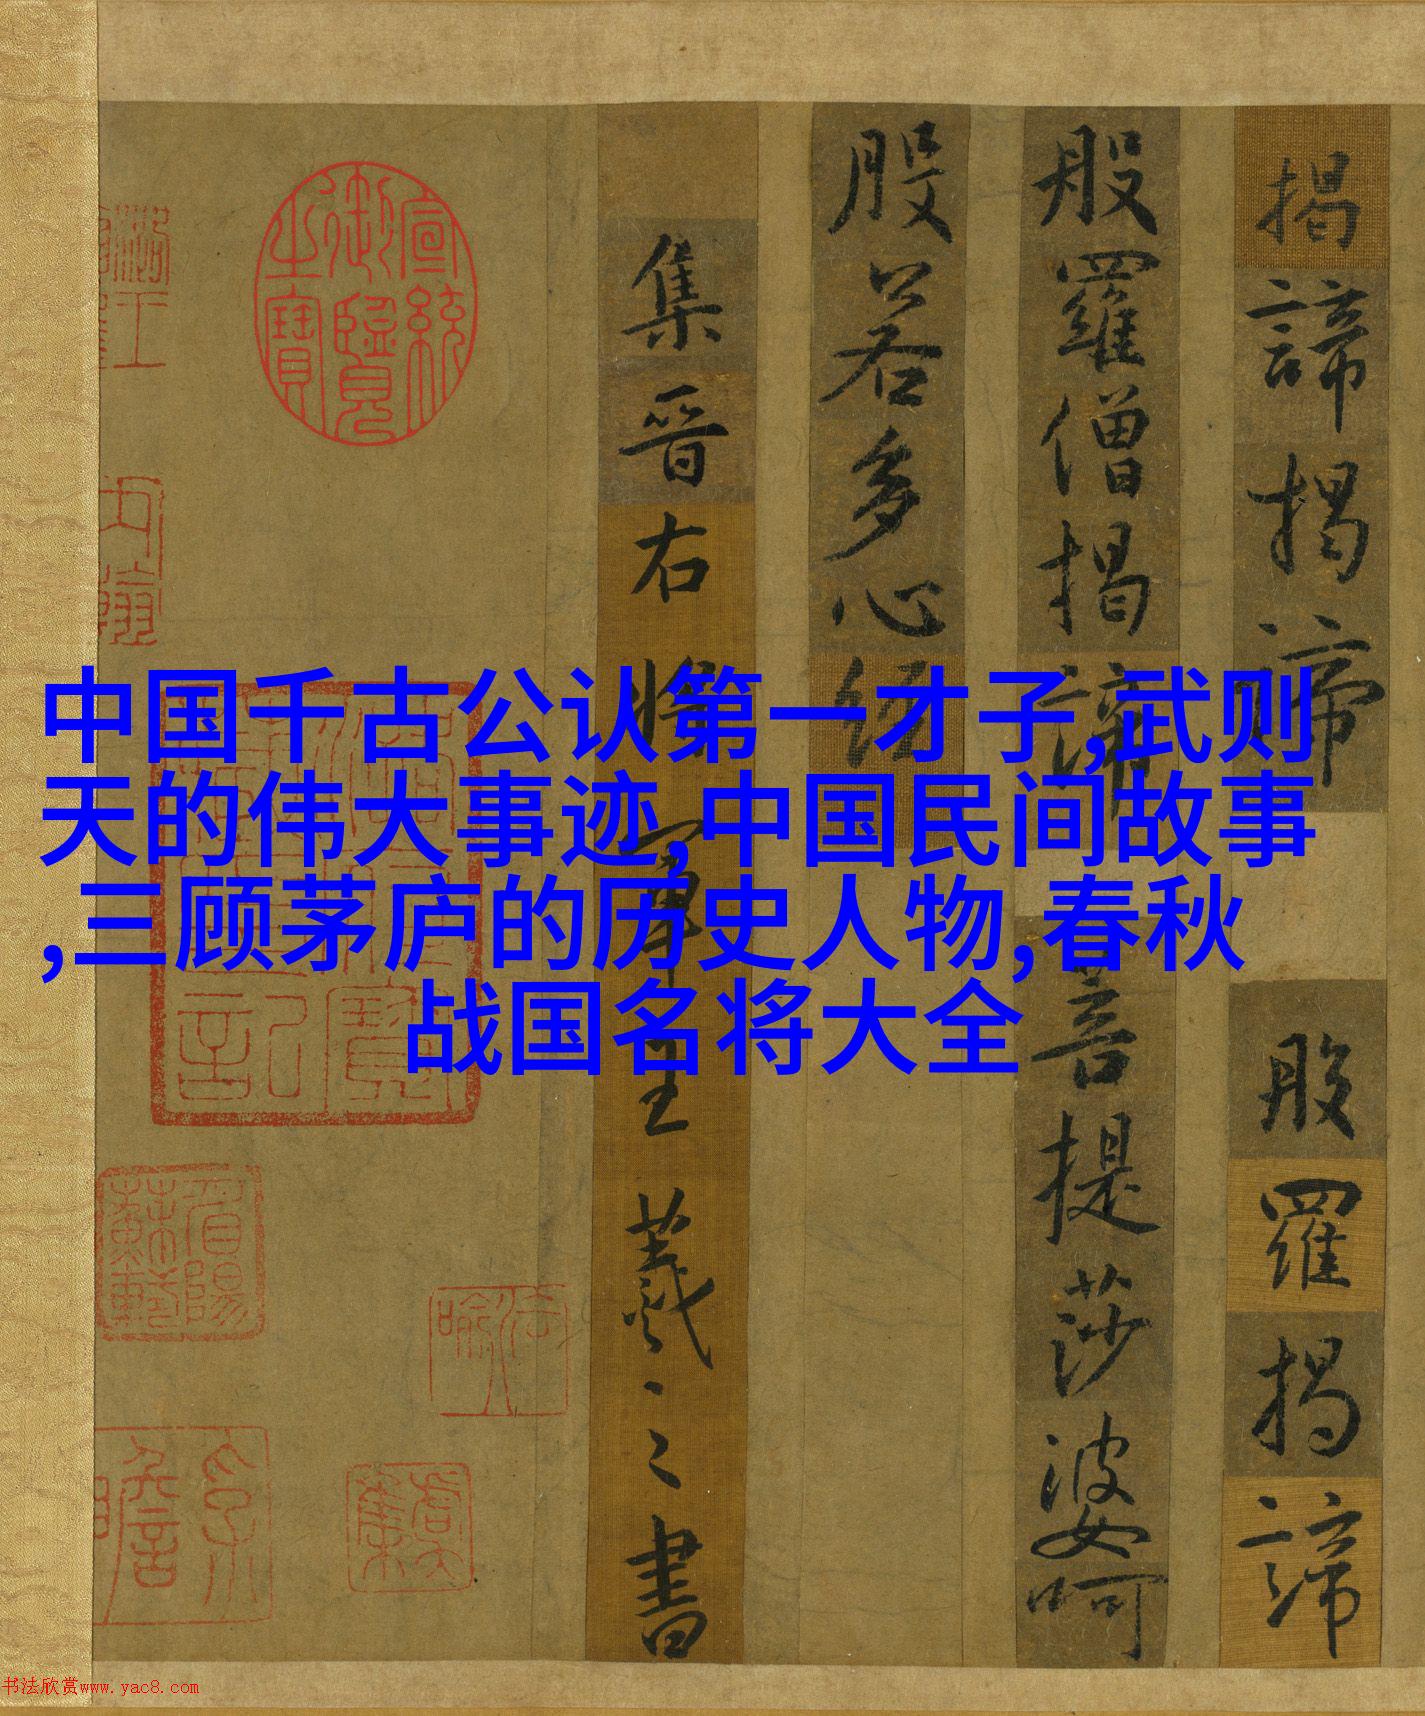 中国千古公认第一才子,武则
天的伟大事迹,中国民间故事
,三顾茅庐的历史人物,春秋
战国名将大全
揭諦揭諦般羅揭諦
般羅僧揭諦菩提莎婆呵
般若多心經
集晉右將軍王羲之書
宣統御覽之寶
书法欣赏www.yac8.com